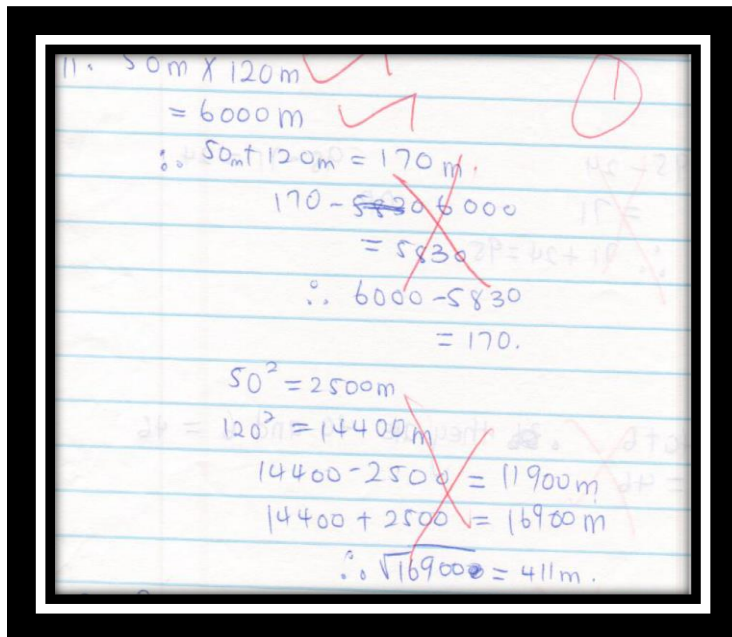 11. 50m X 120m
= 6000m
∴ 50m + 120m = 170m.
170 - 6000
= 5830
∴ 6000 - 5830
= 170.
50² = 2500m
120² = 14400m
14400 - 2500 = 11900m
14400 + 2500 = 16900m
∴ √16900 = 411m.
1